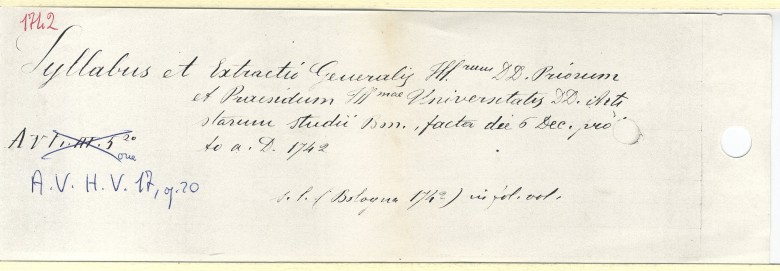 1742
Syllabus et Extractio Generalis Ill.rum DD. Priorum
et Praesidum Ill.mae Universitatis DD. Arti
starum studii Bon., facta die 6 Dec. pro
to a. D. 1742
A V
ora
A. V. H. V. 17, op. 20
s. l. (Bologna 1742) in fol. vol.